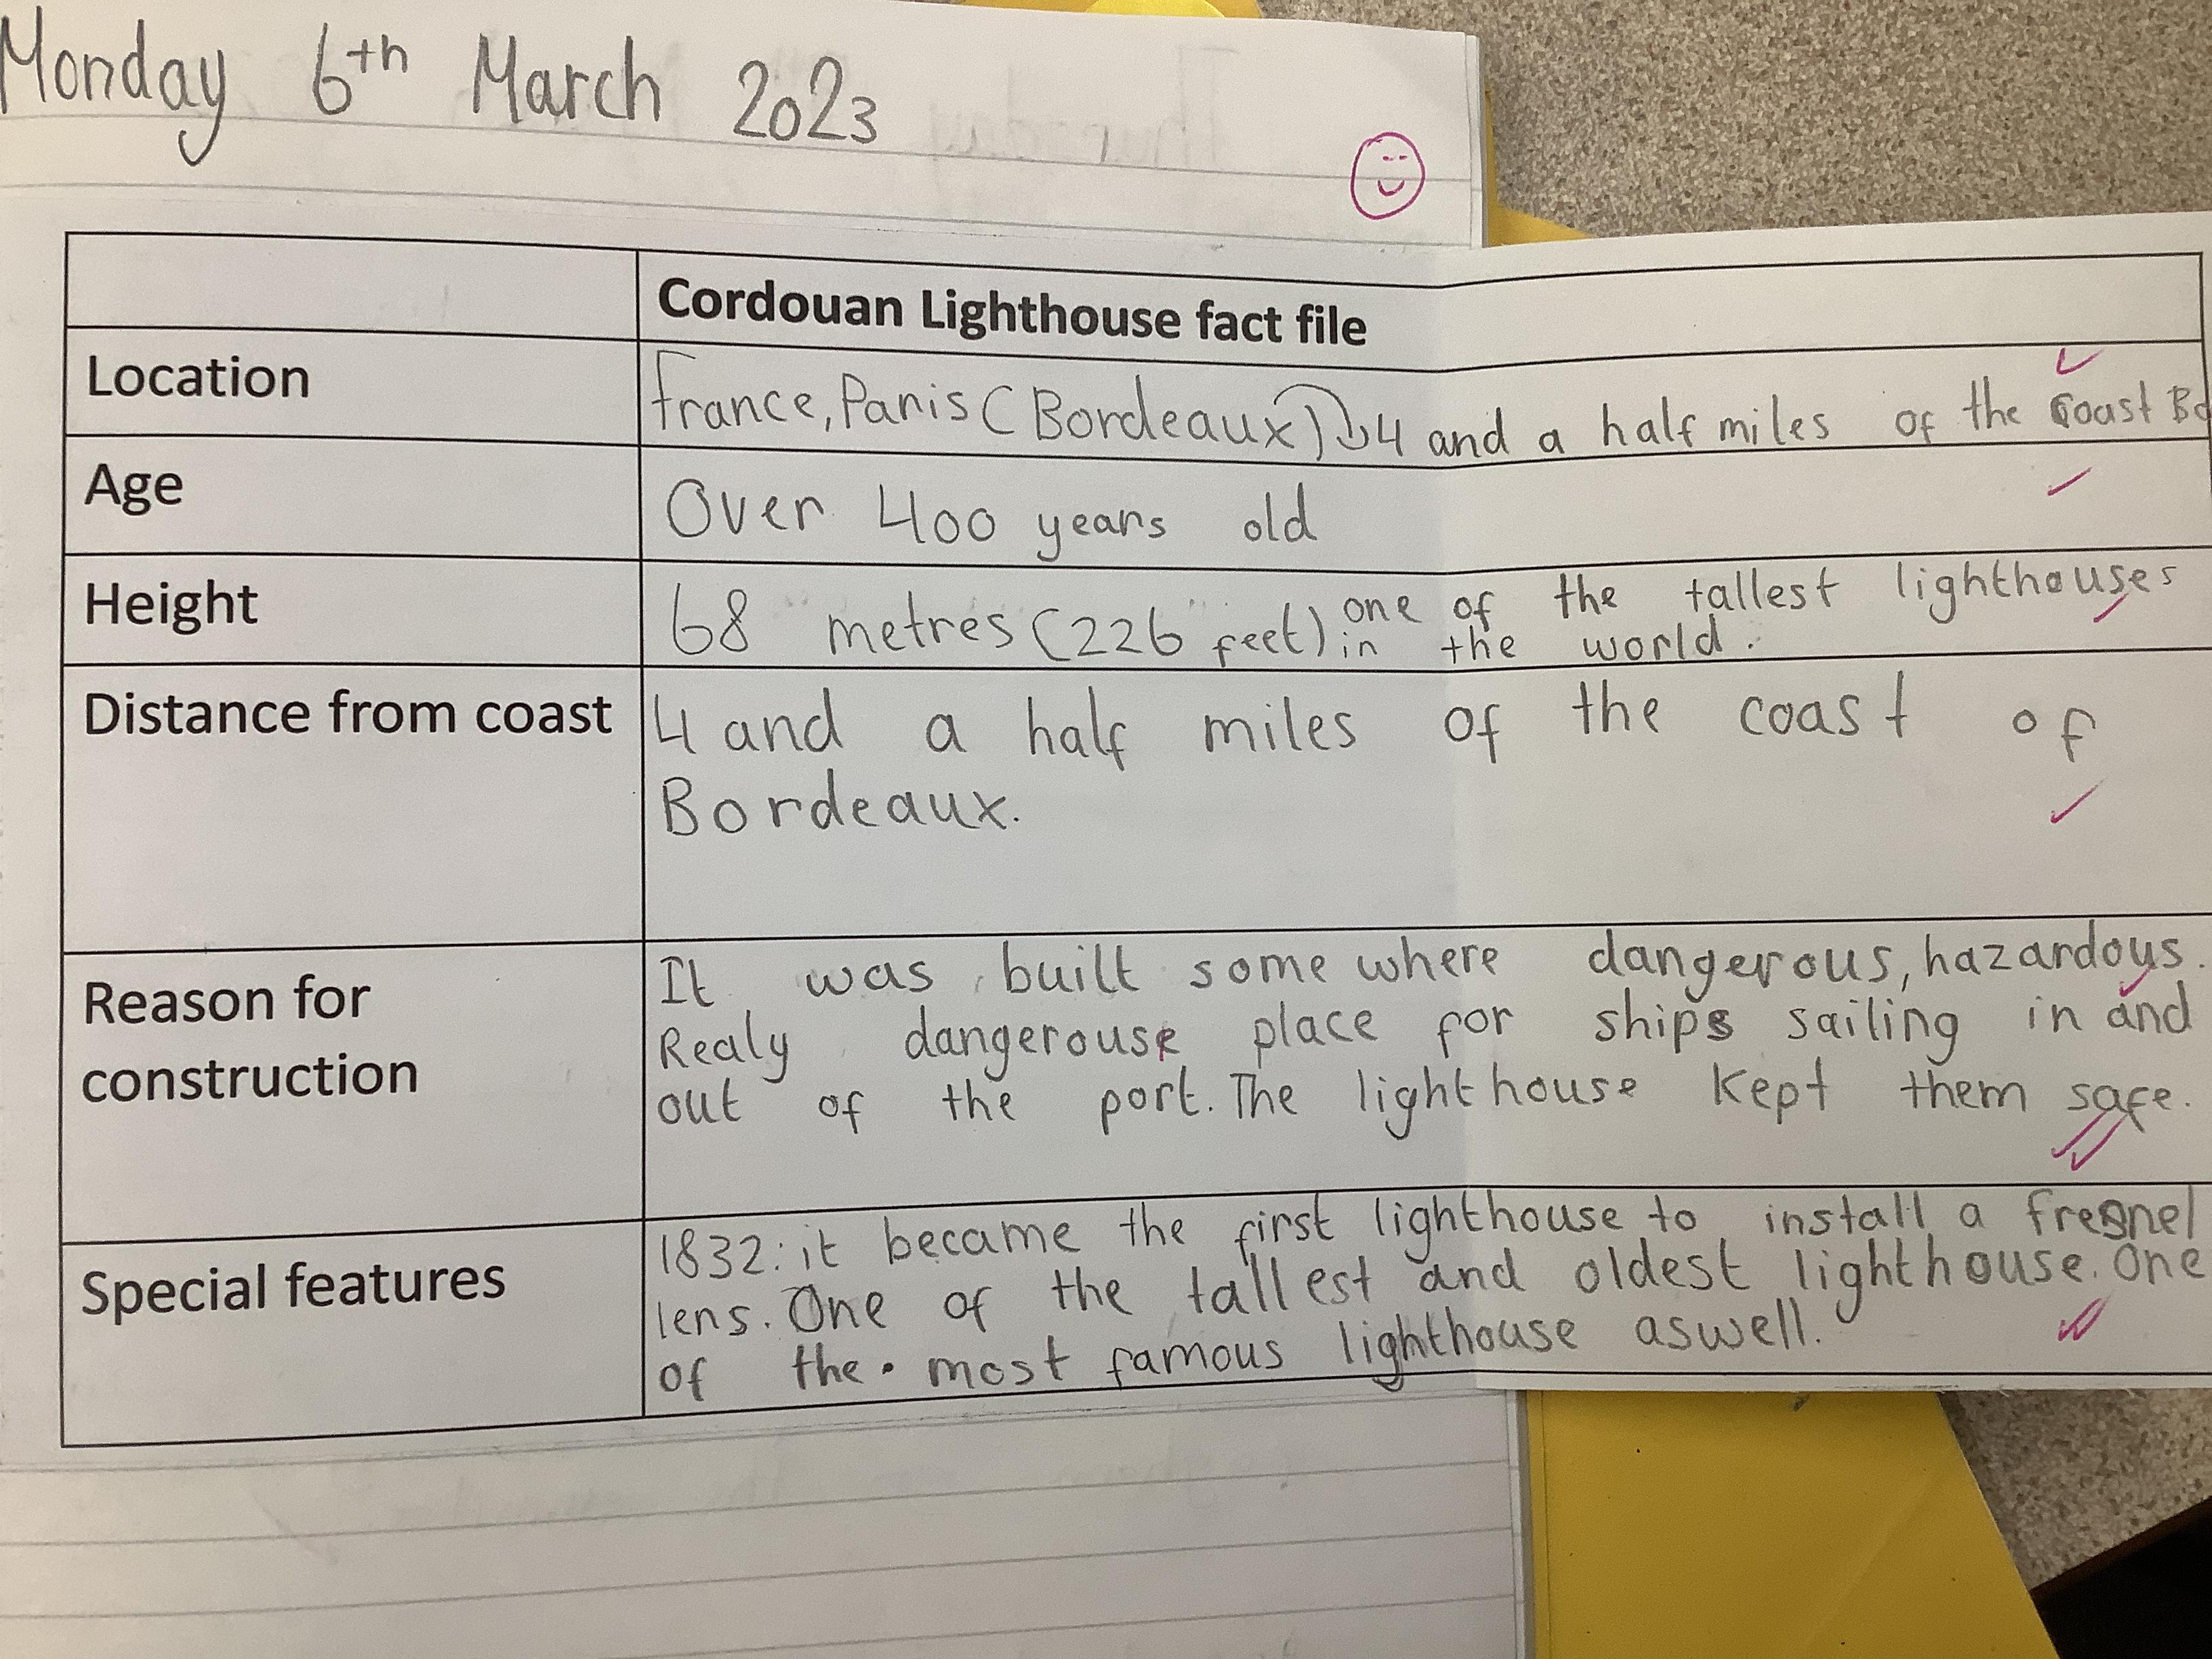 Monday 6th March 2023
Cordouan Lighthouse fact file
Location
France, Paris (Bordeaux) 4 and a half miles of the coast Bo
Age
Over 400 years old
Height
68 metres (226 feet) one of the tallest lighthouses
in the world.
Distance from coast
4 and a half miles of the coast of
Bordeaux.
Reason for
construction
It was built some where dangerous, hazardous.
Realy dangerouse place for ships sailing in and
out of the port. The lighthouse kept them safe.
Special features
1832: it became the first lighthouse to install a fresnel
lens. One of the tallest and oldest lighthouse. One
of the most famous lighthouse aswell.